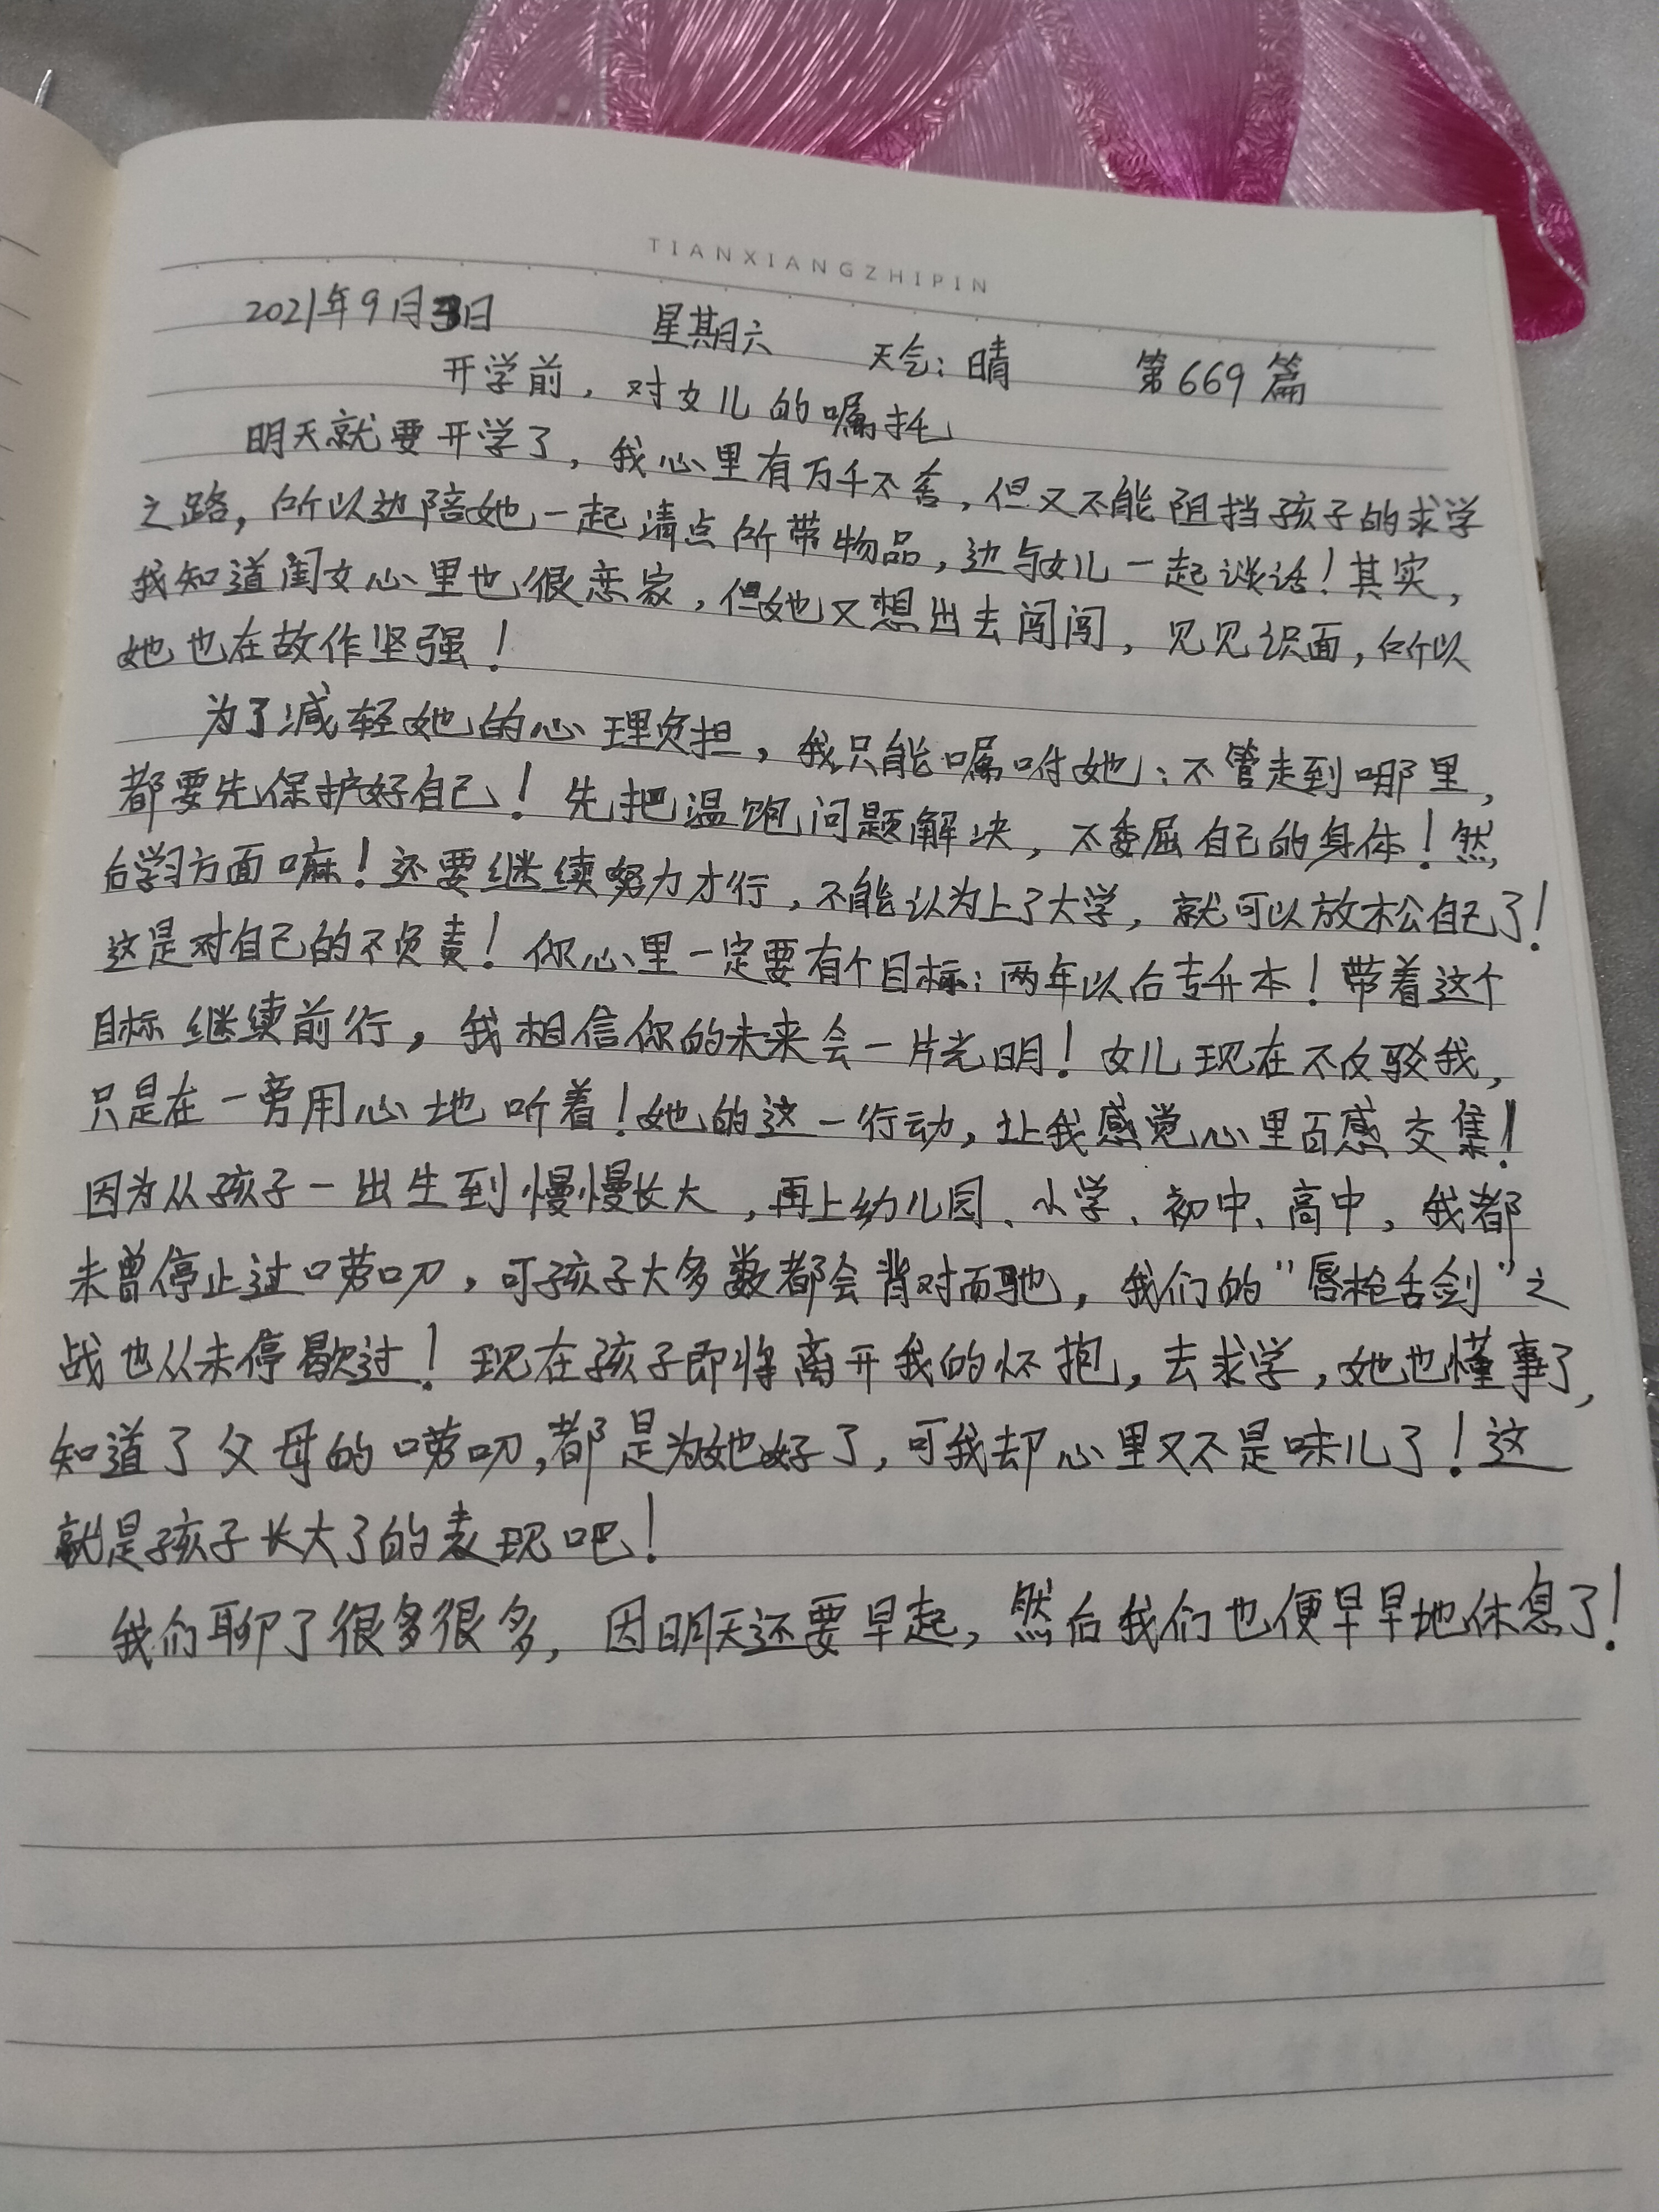 TIANXIANGZHIPIN
2021年9月日 星期六 天气：晴 第669篇
开学前，对女儿的嘱托
明天就要开学了，我心里有万千不舍，但又不能阻挡孩子的求学
之路，所以边陪她一起清点所带物品，边与女儿一起谈话！其实，
我知道闺女心里也很恋家，但她又想出去闯闯，见见识面，所以
她也在故作坚强！
为了减轻她的心理负担，我只能嘱咐她：不管走到哪里，
都要先保护好自己！先把温饱问题解决，不委屈自己的身体！然
后学习方面嘛！还要继续努力才行，不能认为上了大学，就可以放松自己了！
这是对自己的不负责！你心里一定要有个目标：两年以后专升本！带着这个
目标继续前行，我相信你的未来会一片光明！女儿现在不反驳我，
只是在一旁用心地听着！她的这一行动，让我感觉心里百感交集！
因为从孩子一出生到慢慢长大，再上幼儿园、小学、初中、高中，我都
未曾停止过唠叨，可孩子大多数都会背对而驰，我们的"唇枪舌剑"之
战也从未停歇过！现在孩子即将离开我的怀抱，去求学，她也懂事了，
知道了父母的唠叨，都是为她好了，可我却心里又不是味儿了！这
就是孩子长大了的表现吧！
我们聊了很多很多，因明天还要早起，然后我们也便早早地休息了！